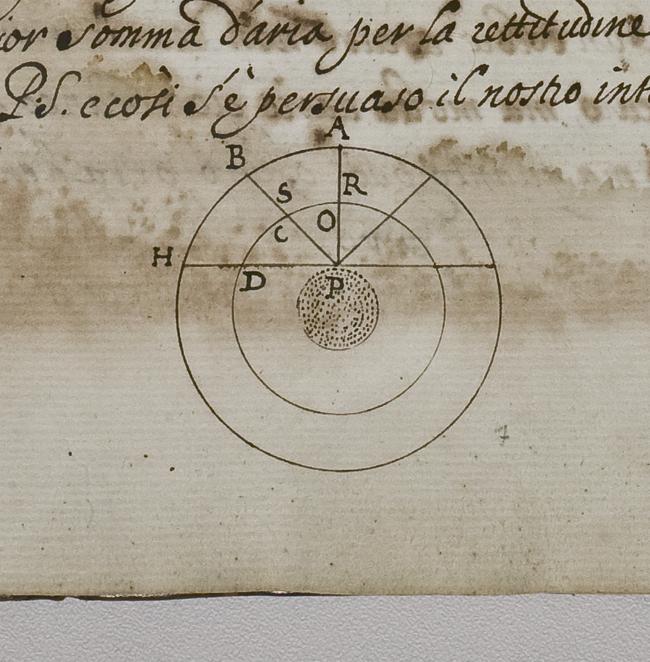 ior somma d'aria per la rettitudine
P.S. e così s'è persuaso il nostro int
A
B
S R
O
C
H
D P